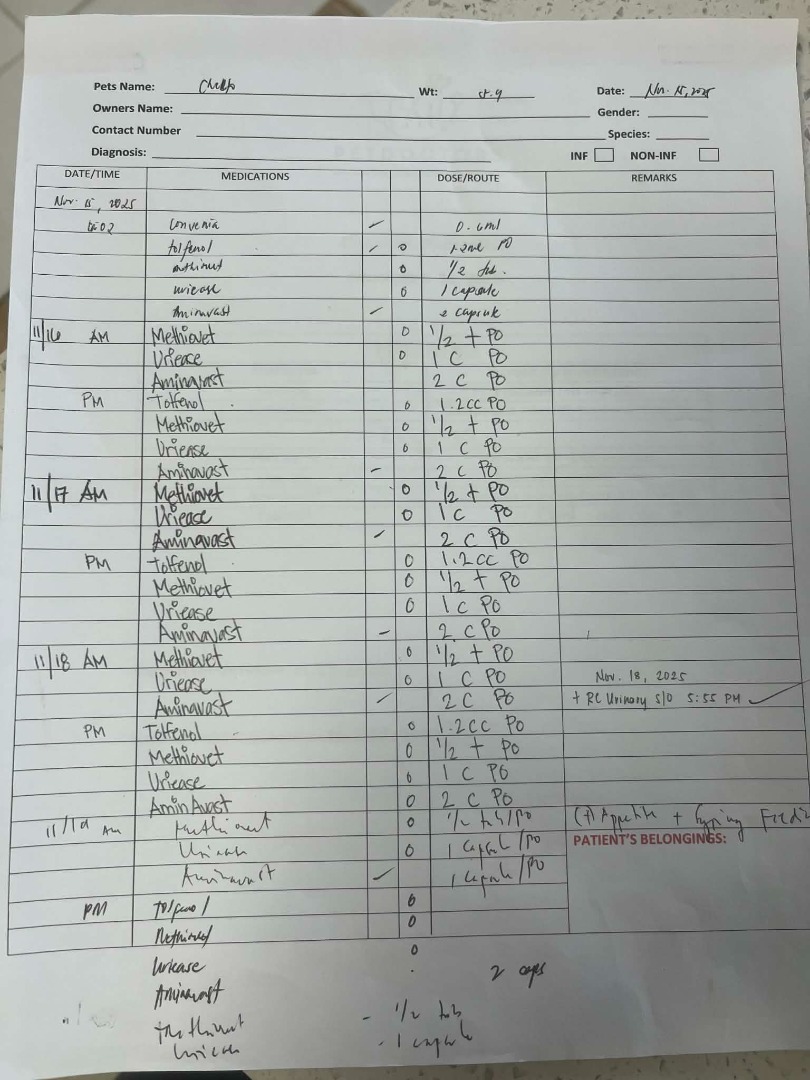 Pets Name: Wt: Date: Nov. 15, 2025
Owners Name: Gender:
Contact Number Species:
Diagnosis: INF NON-INF
DATE/TIME MEDICATIONS DOSE/ROUTE REMARKS
Nov. 15, 2025
Convenia 0.6ml
tolfenol PO
1/2 tab.
uriease 1 capsule
Aminavast 2 capsule
11/16 AM Methiovet 1/2 t PO
Uriease 1 C PO
Aminavast 2 C PO
PM Tolfenol 1.2cc PO
Methiovet 1/2 t PO
Uriease 1 C PO
Aminavast 2 C PO
11/17 AM Methiovet 1/2 t PO
Uriease 1 C PO
Aminavast 2 C PO
PM Tolfenol 1.2cc PO
Methiovet 1/2 t PO
Uriease 1 C PO
Aminavast 2 C PO
11/18 AM Methiovet 1/2 t PO
Uriease 1 C PO Nov. 18, 2025
Aminavast 2 C PO + RC Urinary S/O 5:55 PM
PM Tolfenol 1.2cc PO
Methiovet 1/2 t PO
Uriease 1 C PO
Amin Avast 2 C PO
11/19 AM 1/2 tab/PO (+) Appetite +
1 capsule/PO PATIENT'S BELONGINGS:
Aminavast 1 capsule/PO
PM Tolfenol
Methiovet
Uriease
Aminavast 2 caps
- 1/2 tab
- 1 capsule